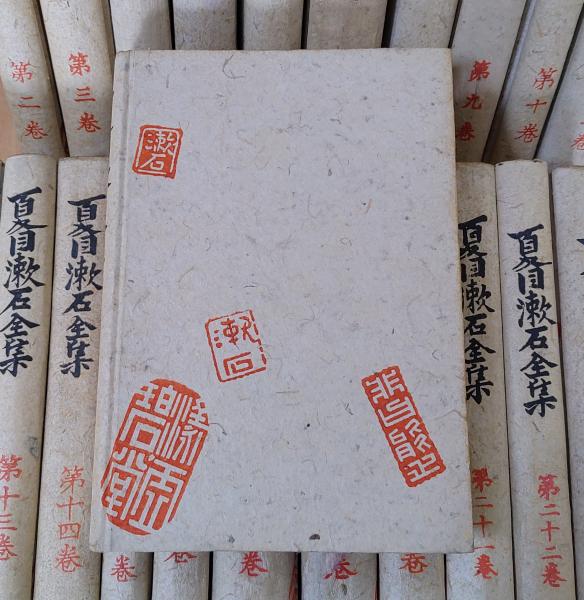 第二巻
第三巻
第九巻
第十巻
漱石
漱石
漾虚碧堂
夏目漱石全集
第十三巻
夏目漱石全集
第十四巻
巻
巻
巻
巻
夏目漱石全集
第二十一巻
夏目漱石全集
第二十二巻